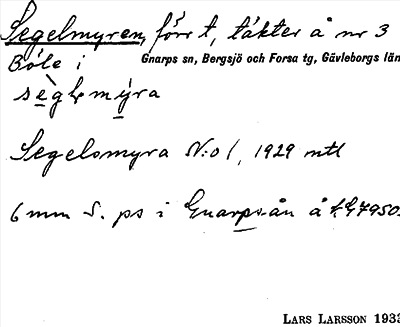 Segelmyren, förr t, täkter å nr 3
Böle i Gnarps sn, Bergsjö och Forsa tg, Gävleborgs län
Segelsmyra N:o 1, 1929 mtl
6 mm S. ps i Gnarpsån å
LARS LARSSON 1933